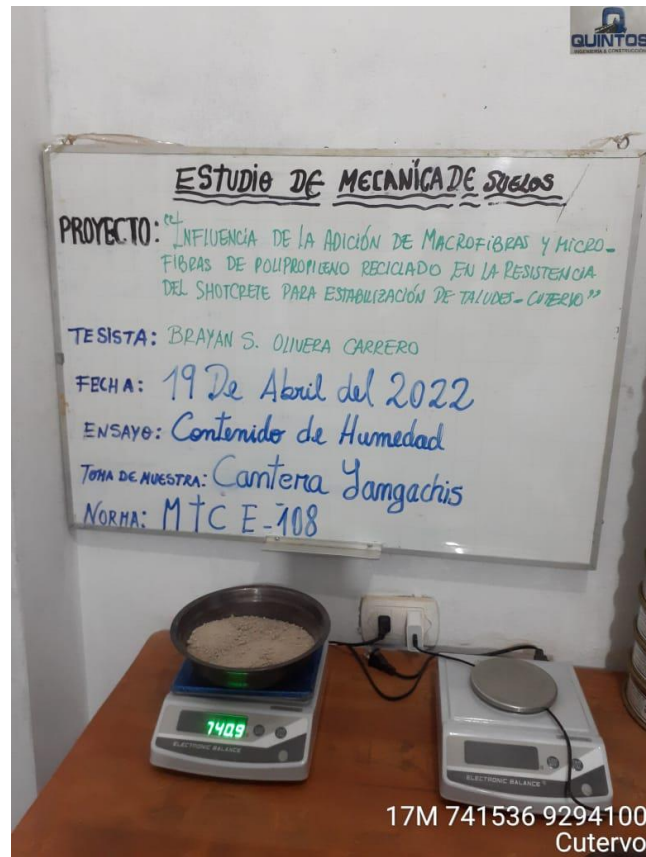 QUINTOS
INGENIERIA & CONSTRUCCIÓN
ESTUDIO DE MECANICA DE SUELOS
PROYECTO: "INFLUENCIA DE LA ADICIÓN DE MACROFIBRAS Y MICRO-
FIBRAS DE POLIPROPILENO RECICLADO EN LA RESISTENCIA
DEL SHOTCRETE PARA ESTABILIZACIÓN DE TALUDES - CUTERVO"
TESISTA: BRAYAN S. OLIVERA CARRERO
FECHA: 19 De Abril del 2022
ENSAYO: Contenido de Humedad
TOMA DE MUESTRA: Cantera Yangachis
NORMA: MTC E-108
740.9
ELECTRONIC BALANCE
ELECTRONIC BALANCE
17M 741536 9294100
Cutervo